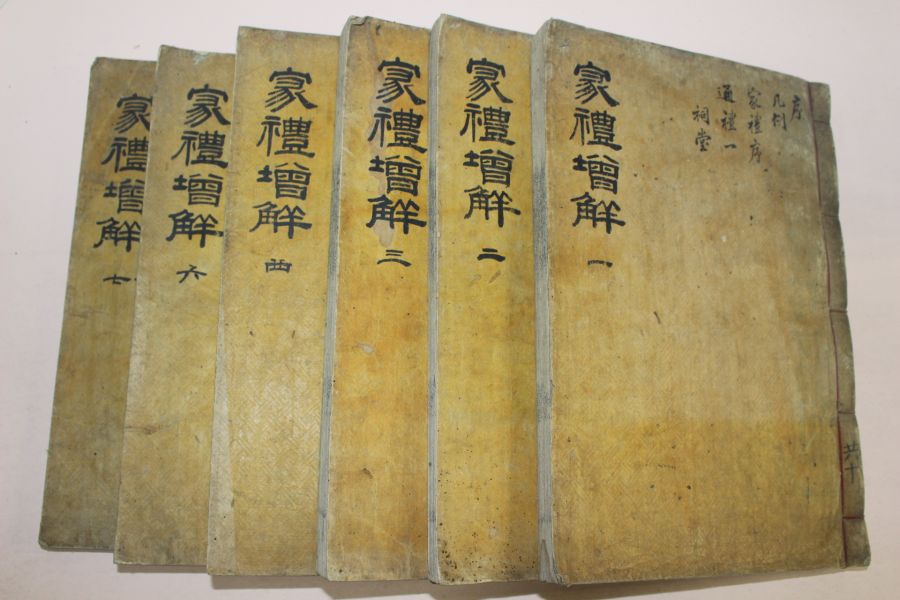 序
凡例
家禮序
通禮一
祠堂
家禮增解 一
共十
家禮增解 二
家禮增解 三
家禮增解 四
家禮增解 六
家禮增解 七